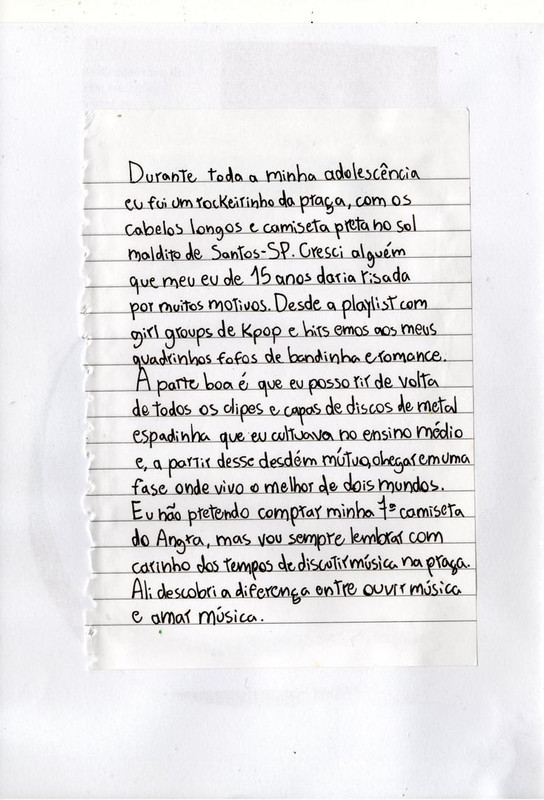 Durante toda a minha adolescência
eu fui um rockeirinho da praça, com os
cabelos longos e camiseta preta no sol
maldito de Santos-SP. Cresci alguém
que meu eu de 15 anos daria risada
por muitos motivos. Desde a playlist com
girl groups de Kpop e hits emos aos meus
quadrinhos fofos de bandinha e romance.
A parte boa é que eu posso rir de volta
de todos os clipes e capas de discos de metal
espadinha que eu cultuava no ensino médio
e, a partir desse desdém mútuo, chegar em uma
fase onde vivo o melhor de dois mundos.
Eu não pretendo comprar minha 7ª camiseta
do Angra, mas vou sempre lembrar com
carinho dos tempos de discutir música na praça.
Ali descobri a diferença entre ouvir música
e amar música.